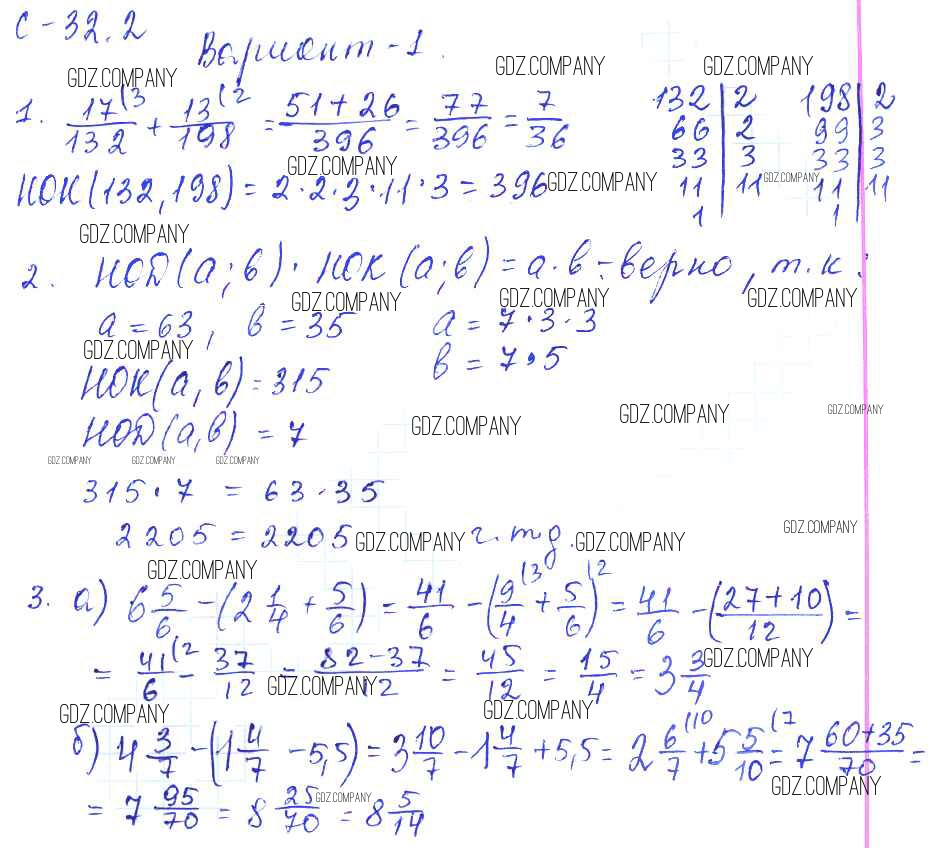 С-32.2
Вариант-1.
GDZ.COMPANY GDZ.COMPANY GDZ.COMPANY
1. 17(3/132 + 13(2/198 = 51+26/396 = 77/396 = 7/36
132|2 198|2
66|2 99|3
33|3 33|3
11|11 11|11
1| 1|
GDZ.COMPANY GDZ.COMPANY GDZ.COMPANY
НОК(132,198) = 2·2·3·11·3 = 396
GDZ.COMPANY
2. НОД(а;в)·НОК(а;в) = а·в - верно, т.к:
GDZ.COMPANY GDZ.COMPANY GDZ.COMPANY
а = 63, в = 35 а = 7·3·3
GDZ.COMPANY
в = 7·5
НОК(а,в) = 315
GDZ.COMPANY GDZ.COMPANY GDZ.COMPANY
НОД(а,в) = 7
GDZ.COMPANY GDZ.COMPANY GDZ.COMPANY
315·7 = 63·35
2205 = 2205 ч.т.д.
GDZ.COMPANY GDZ.COMPANY GDZ.COMPANY
GDZ.COMPANY
3. а) 6 5/6 - (2 1/4 + 5/6) = 41/6 - (9(3/4 + 5(2/6) = 41/6 - (27+10/12) =
= 41(2/6 - 37/12 = 82-37/12 = 45/12 = 15/4 = 3 3/4
GDZ.COMPANY GDZ.COMPANY
GDZ.COMPANY GDZ.COMPANY
б) 4 3/7 - (1 4/7 - 5,5) = 3 10/7 - 1 4/7 + 5,5 = 2 6(10/7 + 5 5(7/10 = 7 60+35/70 =
GDZ.COMPANY
= 7 95/70 = 8 25/70 = 8 5/14
GDZ.COMPANY